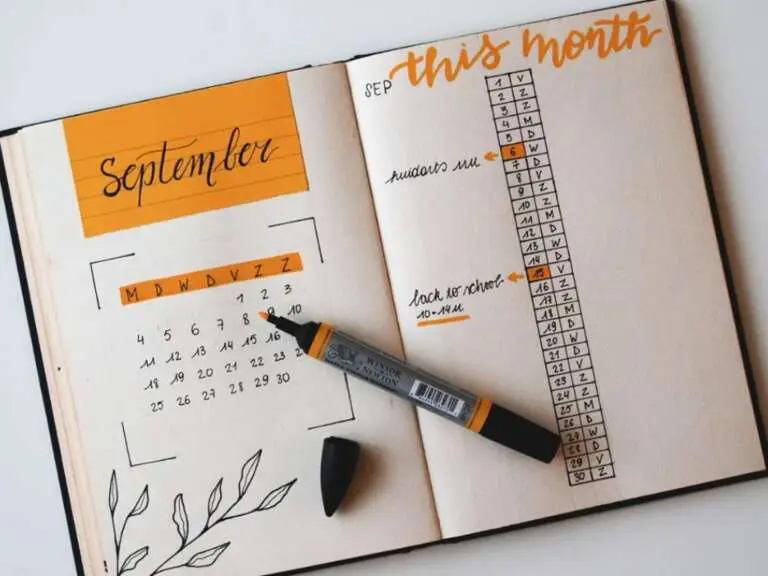 September
M D W D V Z Z
1 2 3
4 5 6 7 8 9 10
11 12 13 14 15 16
18 19 20 21 22 23
25 26 27 28 29 30
WINSOR
& NEWTON
this month
SEP
1 V
2 Z
3 Z
4 M
5 D
6 W
huidarts
7 D
8 V
9 Z
10 Z
11 M
12 D
13 W
14 D
15 V
back to school
10-14u
16 Z
17 Z
18 M
19 D
20 W
21 D
22 V
23 Z
24 Z
25 M
26 D
27 W
28 D
29 V
30 Z